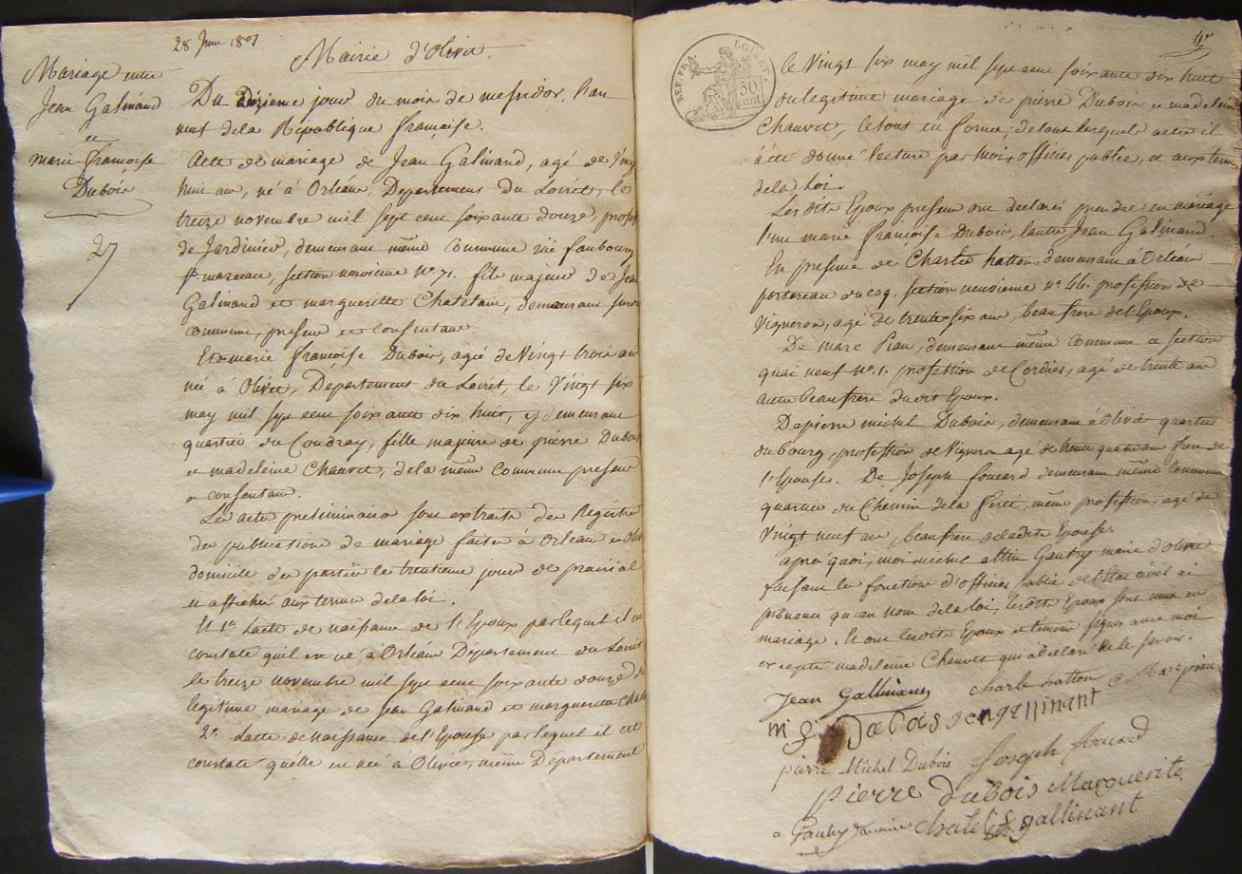 28 Juin 1801
Mairie d'Olivet
Mariage entre
Jean Galinand
et
marie françoise
Dubois
27
Du dixieme jour du mois de messidor, l'an
neuf de la République française.
Acte de mariage de Jean Galinand, agé de vingt
huit ans, né à Orléans, Departement du Loiret, le
treize novembre mil sept cent soixante douze, profes
de Jardinier, demeurant même Commune rue faubourg
st marceau, section neuvieme no 71. fils majeur de Jean
Galinand et margueritte Chatelain, demeurant
commune, present et consentant
Et marie françoise Dubois, agée de Vingt trois ans
née à Olivet, Departement du Loiret, le Vingt six
may mil sept cent soixante dix huit, y demeurant
quartier du Coudray, fille majeure de pierre Dubois
et madeleine Chauvet, de la même commune present
et consentant.
Les actes preliminaires sont extraits des Registres
des publications de mariage faites à Orleans et Oli
domicile des parties le trentieme jour de prairial
et affiché aux termes de la loi.
Et 1o Lacte de naissance de l'Epoux par lequel il est
constaté qu'il est né à Orleans Departement du Loiret
le treize novembre mil sept cent soixante douze de
legitime mariage de jean Galinand et marguerite Chate
2o Lacte de naissance de l'Epouse par lequel il est
constaté qu'elle est née à Olivet, même Departement
REP. FRA.
LOI
50
cent
le Vingt six may mil sept cent soixante dix huit
du legitime mariage de pierre Dubois et madeleine
Chauvet, le tout en forme, de tous lesquels actes il
a été donné lecture par moi officier public, et aux termes
de la Loi.
Les dits Epoux presents ont declaré prendre en mariage
l'une marie françoise Dubois, l'autre Jean Galinand.
En presence de Charles hatton, demeurant à Orléans
portereau du coq, section neuvieme no 46. profession de
Vigneron, agé de trente six ans, beau frere de l'Epoux.
De marc Pian, demeurant même commune et section
quai neuf no 1. profession de Cordier, agé de trente ans
autre beau frere du dit Epoux.
De pierre michel Dubois, demeurant à Olivet quartier
du bourg, profession de Vigneron agé de trente quatre ans frere de
l'Epouse. De Joseph fouard demeurant même commune
quartier du Chemin de la Ferté, même profession, agé de
Vingt neuf ans, beau frere de la dite Epouse.
apres quoi, moi michel Gaudry maire d'olivet
faisant les fonctions d'officier public de l'Etat civil ai
prononcé qu'au nom de la loi, lesdits Epoux sont unis en
mariage. Et ont lesdits Epoux et temoins signé avec moi
excepté madeleine Chauvet qui a declaré ne le savoir.
Jean Gallinand charle hatton Marc pian
m Dubois gallinant
pierre Michel Dubois Joseph fouard
pierre dubois Marguerite
Gaudry maire chatel gallinant